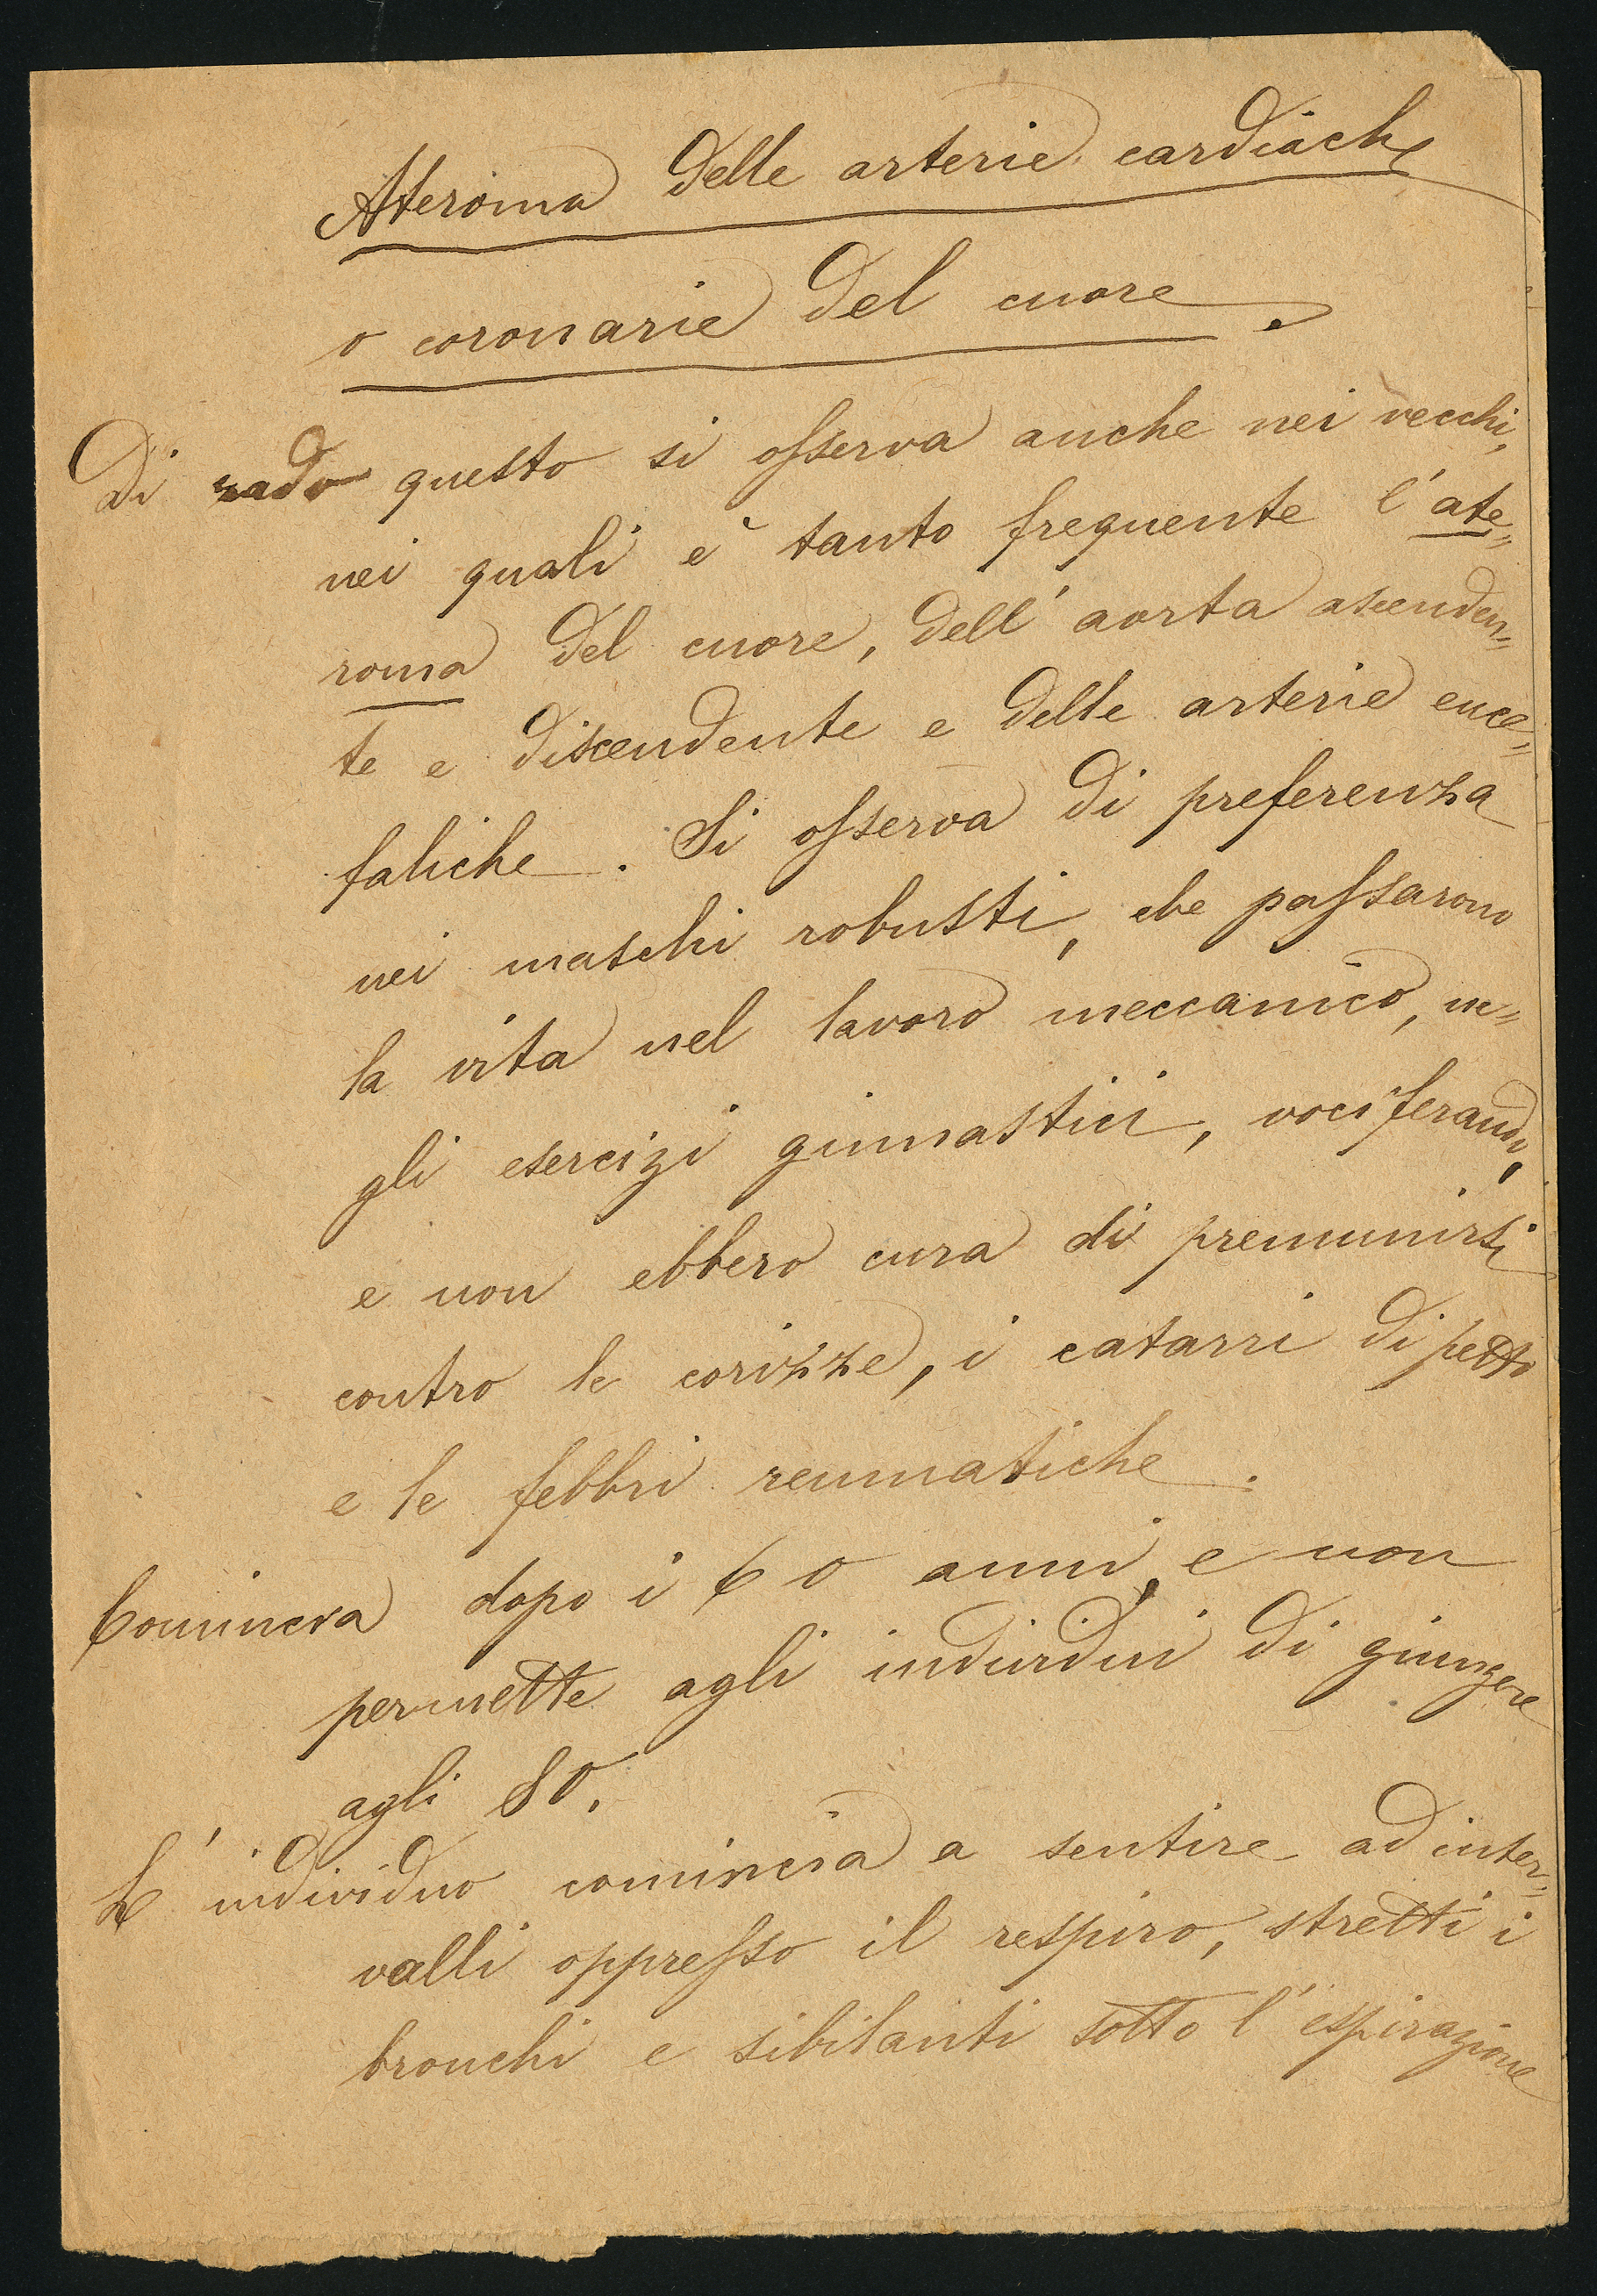 Ateroma delle arterie cardiache
o coronarie del cuore.
Di rado questo si osserva anche nei vecchi,
nei quali è tanto frequente l'ate=
roma del cuore, dell'aorta ascenden=
te e discendente e delle arterie ence=
faliche. Si osserva di preferenza
nei maschi robusti, che passarono
la vita nel lavoro meccanico, ne=
gli esercizi ginnastici, vociferando,
e non ebbero cura di premunirsi
contro le corizze, i catarri di petto
e le febbri reumatiche.
Comincia dopo i 60 anni, e non
permette agli individui di giungere
agli 80.
L'individuo comincia a sentire ad inter=
valli oppresso il respiro, stretti i
bronchi e sibilanti sotto l'espirazione